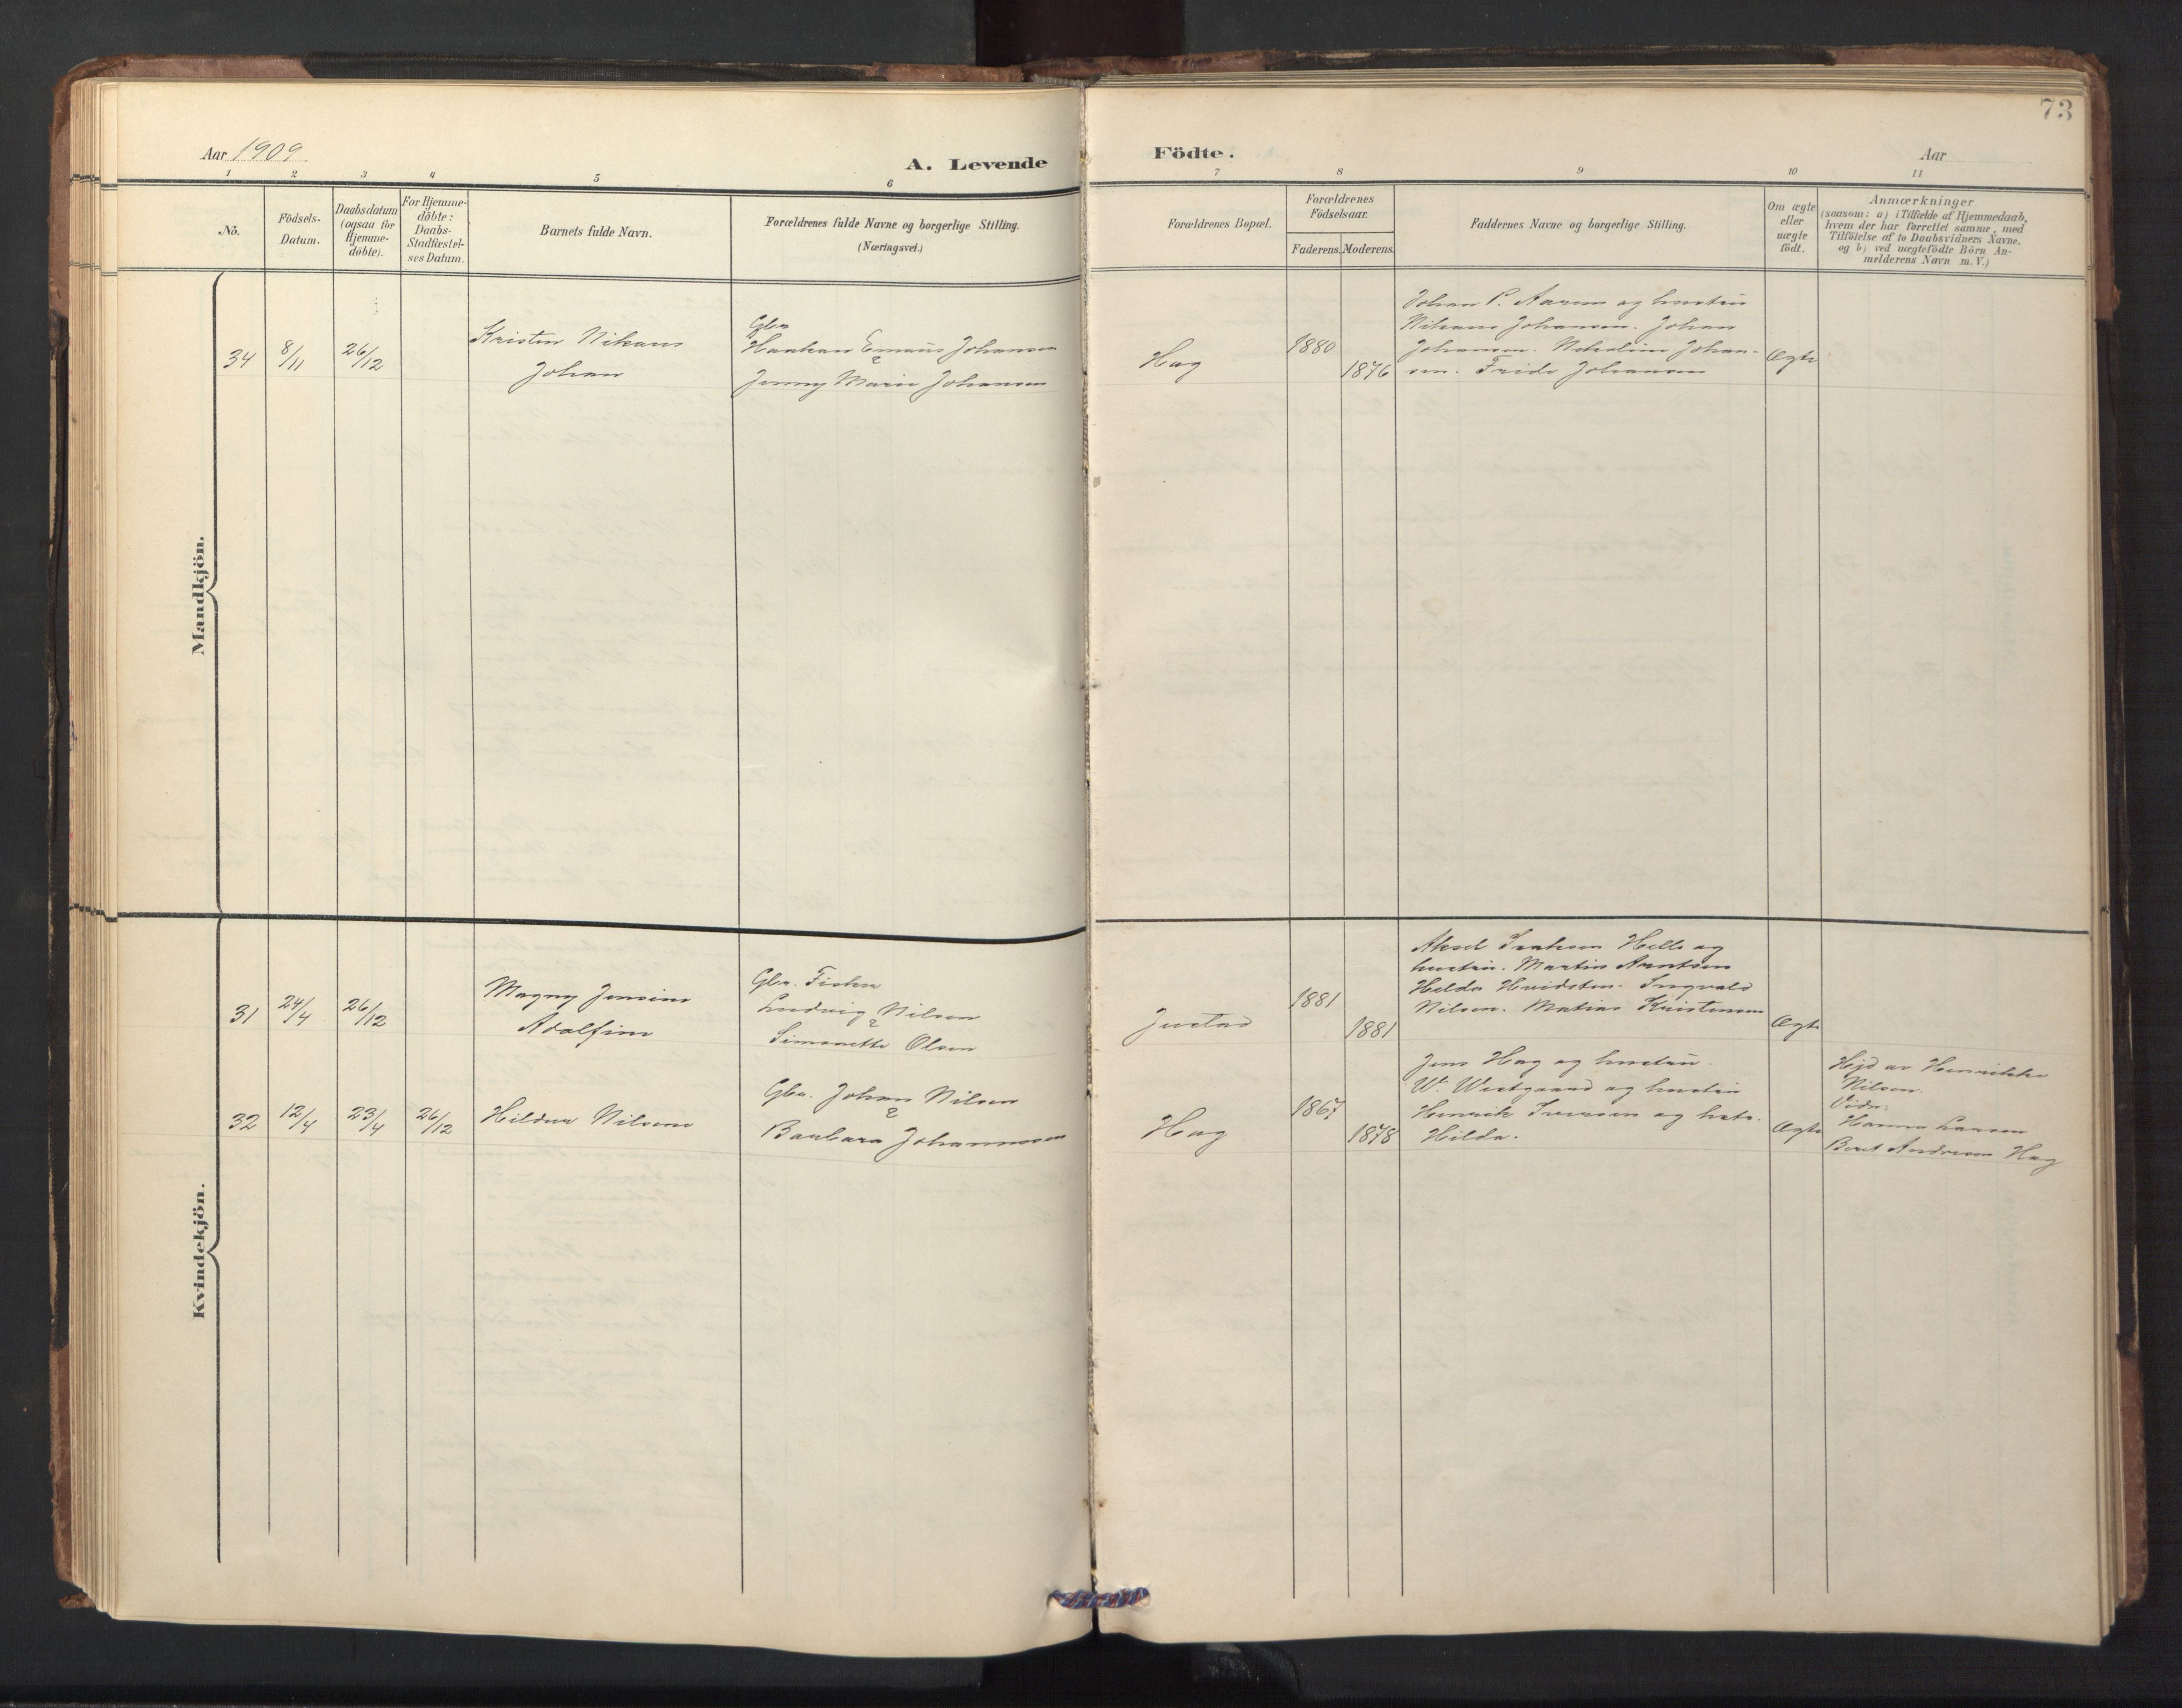 73
Aar 1909
A. Levende Födte.
Aar
1 2 3 4 5 6 7 8 9 10 11
No.
Födsels-
Datum.
Daabsdatum
(ogsaa for
Hjemme-
döbte).
For Hjemme-
döbte:
Daabs-
Stadfæstel-
ses Datum.
Barnets fulde Navn.
Forældrenes fulde Navne og borgerlige Stilling.
(Næringsvei.)
Forældrenes Bopæl.
Forældrenes
Födselsaar.
Faderens. Moderens.
Faddernes Navne og borgerlige Stilling.
Om ægte
eller
uægte
födt.
Anmærkninger
(saasom: a) i Tilfælde af Hjemmedaab,
hvem der har forrettet samme, med
Tilföielse af to Daabsvidners Navne.
og b) ved uægtefödte Börn An-
melderens Navn m. V.)
Mandkjön.
34 8/11 26/12
Johan
Gbr
Haakon Johansen
Jenny Marie Johansen
Hag
1880
1876
Johan P. og hustru
Johansen. Johan
Johansen. Johan-
sen. Johansen
Ægte
Kvindekjön.
31 24/4 26/12
Magny Jensine
Adolfine
Gbr. Fisker
Ludvig Nilsen
Simonette Olsen
Justad
1881
1881
Aksel Helle og
hustru. Martin Arntsen
Hilda Hvidsten. Ingvald
Nilsen. Matias Kristensen
Ægte
32 12/4 23/4 26/12
Hildur Nilsene
Gbr. Johan Nilsen
&
Barbara Johannessen
Hag
1867
1878
Jens Hag og hustru.
W. Westgaard og hustru
Henrik Iversen og
Hilda.
Ægte
Hjd av Henrikke
Nilsen.
Vidn:
Hanna Larsen
Berit Andersen Hag